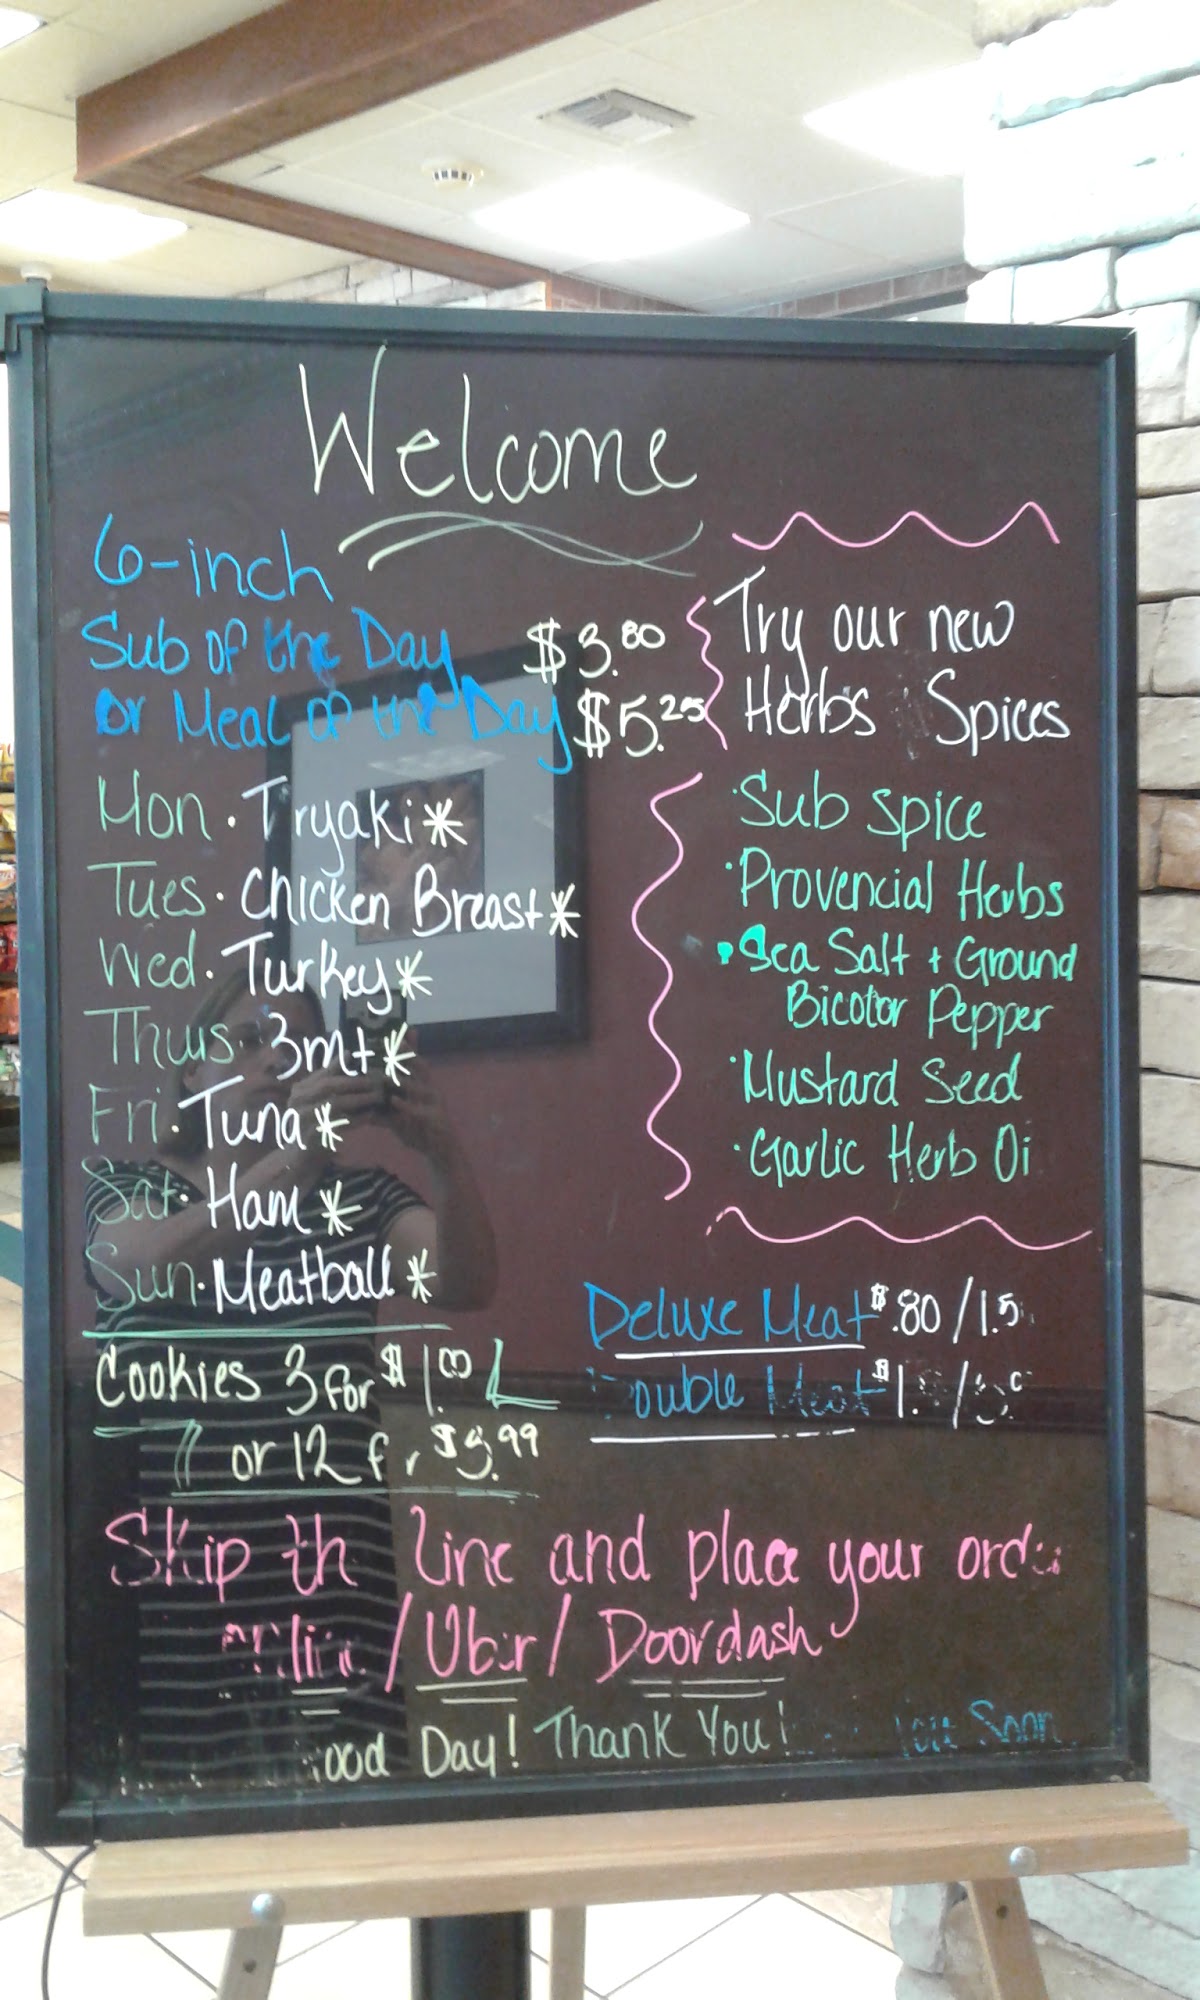 Welcome
6-inch
Sub of the Day $3.80
or Meal of the Day $5.25
Mon. Tryaki*
Tues. Chicken Breast*
Wed. Turkey*
Thurs. 3mt*
Fri. Tuna*
Sat. Ham*
Sun. Meatball*
Cookies 3 for $1.00
or 12 f r $3.99
Try our new
Herbs Spices
·Sub spice
·Provencial Herbs
·Sea Salt + Ground
Bicolor Pepper
·Mustard Seed
·Garlic Herb Oi
Deluxe Meat $.80/1.5
ouble Meat $1.
Skip th line and place your ord
/Uber/ Doordash
ood Day! Thank You! Soon